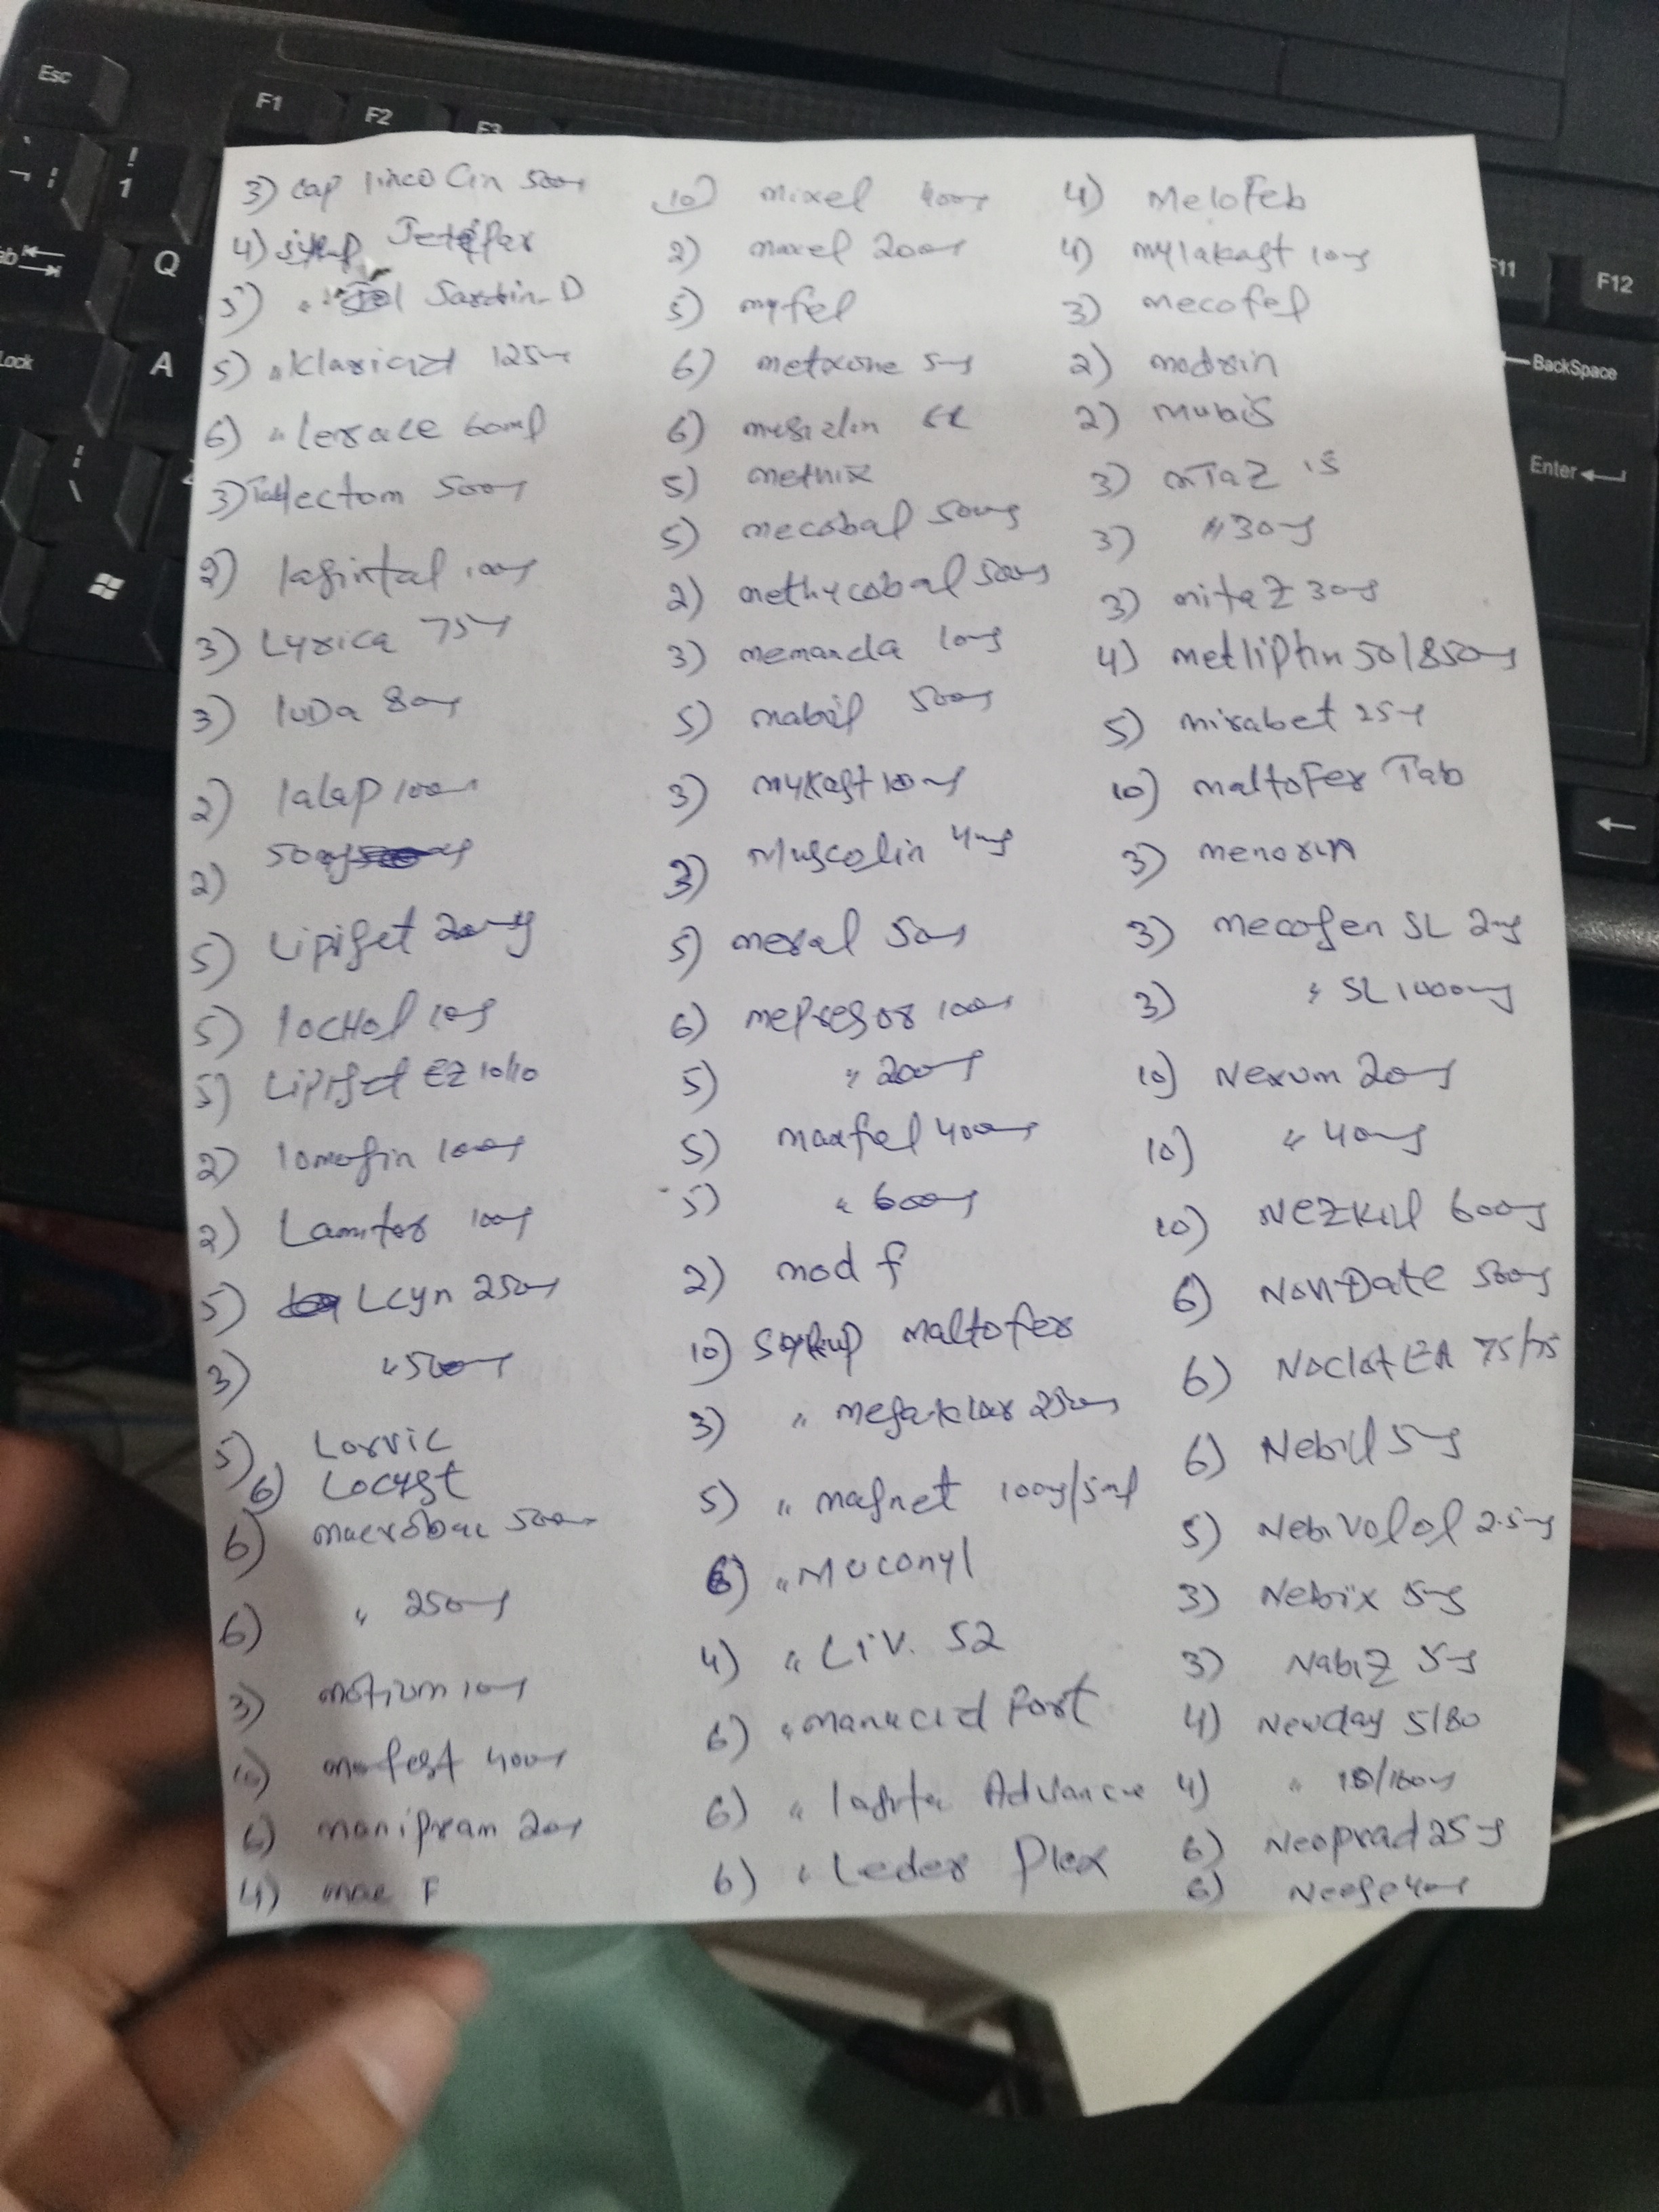 3) cap linco Cin 500mg
4) syrup
5) " Jardin-D
5) " Klaricid 125mg
6) " Lerace 60ml
3) Tab Lectom 500mg
2) 100mg
3) Lyrica 75mg
3) luDa 80mg
2) lalap 100mg
2) 50mg
5) Lipiget 20mg
5) locHol 10mg
5) Lipiget EZ 10/10
2) lamogin 100mg
2) Lamitor 100mg
5) Lcyn 250mg
3) " 500mg
5) Lorvic
6) Locyst
6) macrobac 500mg
6) " 250mg
3) motium 10mg
10) 400mg
6) manipram 20mg
4) mac F
10) mixel 400mg
2) maxel 200mg
5) myfel
6) metxone 5mg
6) SR
5) methix
5) mecobal 500mg
2) methycobal 500mg
3) memanda 10mg
5) mabil 500mg
3) mykast 10mg
3) Muscolin 4mg
5) meral 50mg
6) mepresor 100mg
5) " 200mg
5) maxfel 400mg
5) " 600mg
2) mod f
10) Syrup maltofer
3) " megaklar 250mg
5) " magnet 100mg/5ml
6) " Muconyl
4) " Liv. 52
6) " manacid fort
6) " Advance
6) " Leder Plex
4) Melofeb
4) mylakast 10mg
3) mecofel
2) modrin
2) Mubis
3) mTaZ 15
3) " 30mg
3) mitaZ 30mg
4) metliptin 50/850mg
5) mirabet 25mg
10) maltofer Tab
3) menorin
3) mecogen SL 2mg
3) " SL 1000mg
10) Nexum 20mg
10) " 40mg
10) NEZKIL 600mg
6) NoviDate 500mg
6) Noclot EA 75/75
6) Nebil 5mg
5) Nebivolol 2.5mg
3) Nebix 5mg
3) NabiZ 5mg
4) Newday 5/80
4) " 10/160mg
6) Neoprad 25mg
6) 40mg